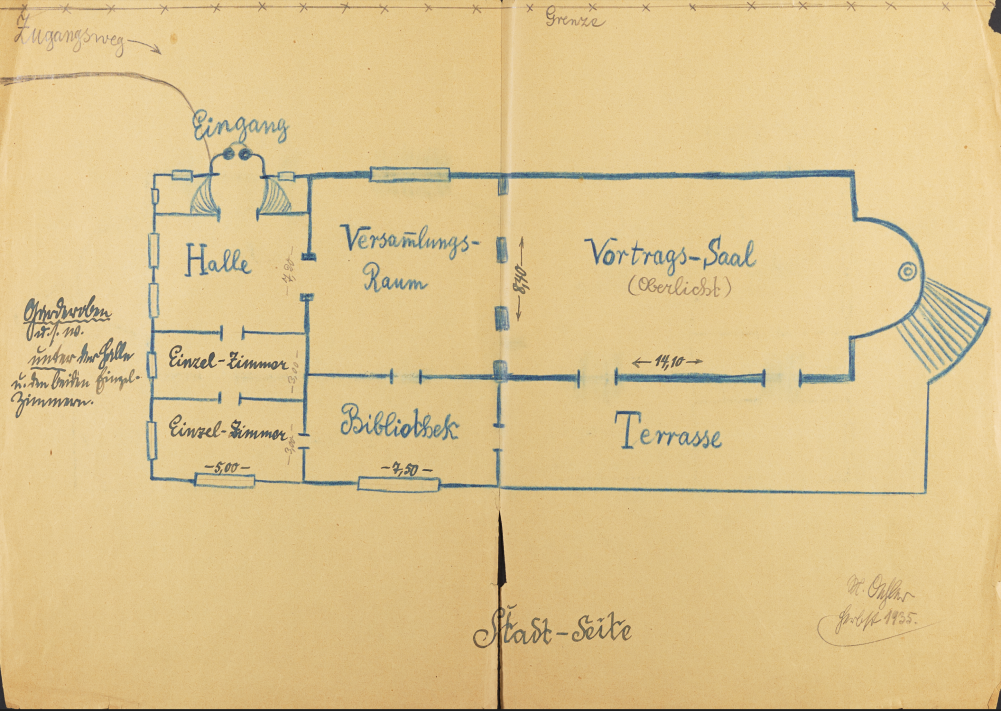 Grenze
Zugangsweg
Eingang
Halle
Versam̄lungs-
Raum
Vortrags-Saal
(Oberlicht)
7,90
8,40
14,10
Garderoben
u.s.w.
unter der Halle
u. den beiden Einzel-
Zimmern.
Einzel-Zimmer
Einzel-Zimmer
Bibliothek
Terrasse
-5,00-
-7,50-
Stadt-Seite
M. Oehler
Herbst 1935.